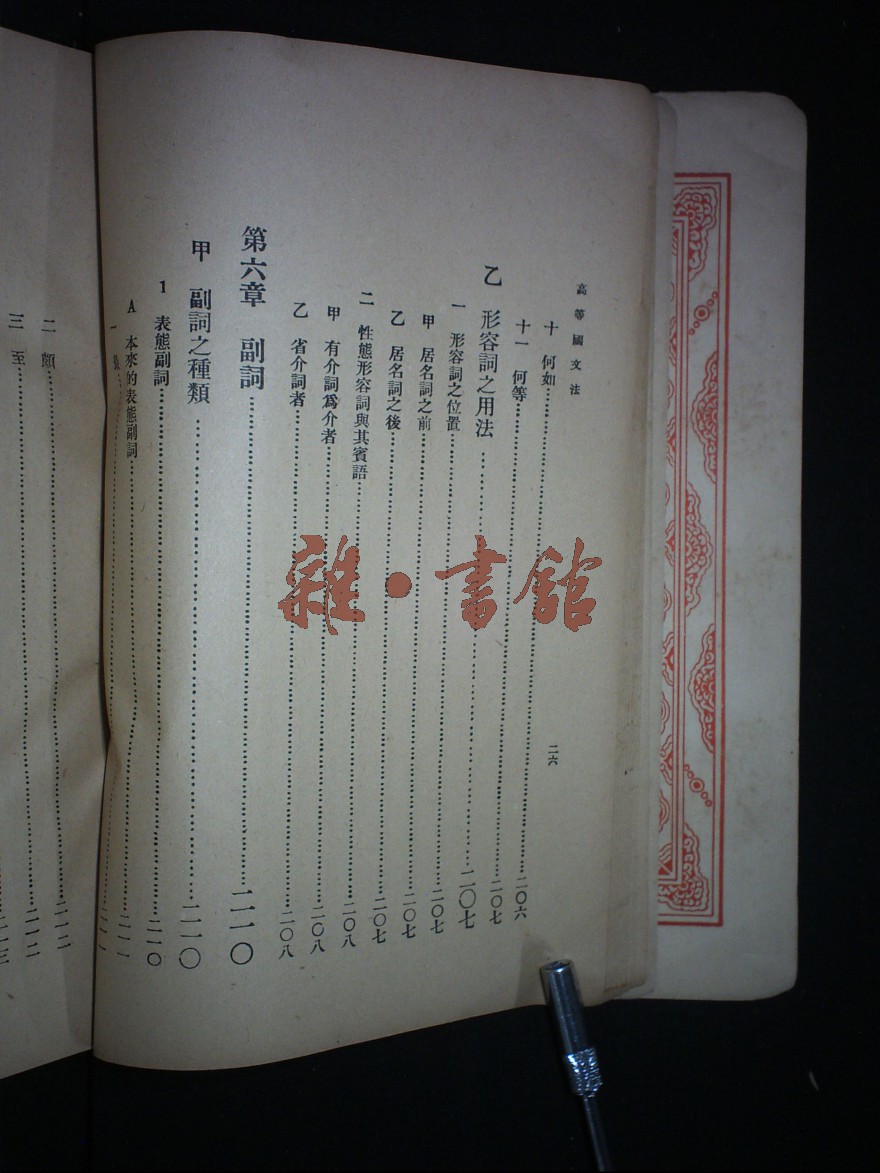 高等國文法
二六
十 何如……二〇六
十一 何等……二〇七
乙 形容詞之用法……二〇七
一 形容詞之位置……二〇七
甲 居名詞之前……二〇七
乙 居名詞之後……二〇七
二 性態形容詞與其賓語……二〇八
甲 有介詞爲介者……二〇八
乙 省介詞者……二〇八
第六章 副詞……二一〇
甲 副詞之種類……二一〇
1 表態副詞……二一〇
A 本來的表態副詞……二一一
一……二一一
二 頗……二一二
三 至……二一二
二一三
雜·書館